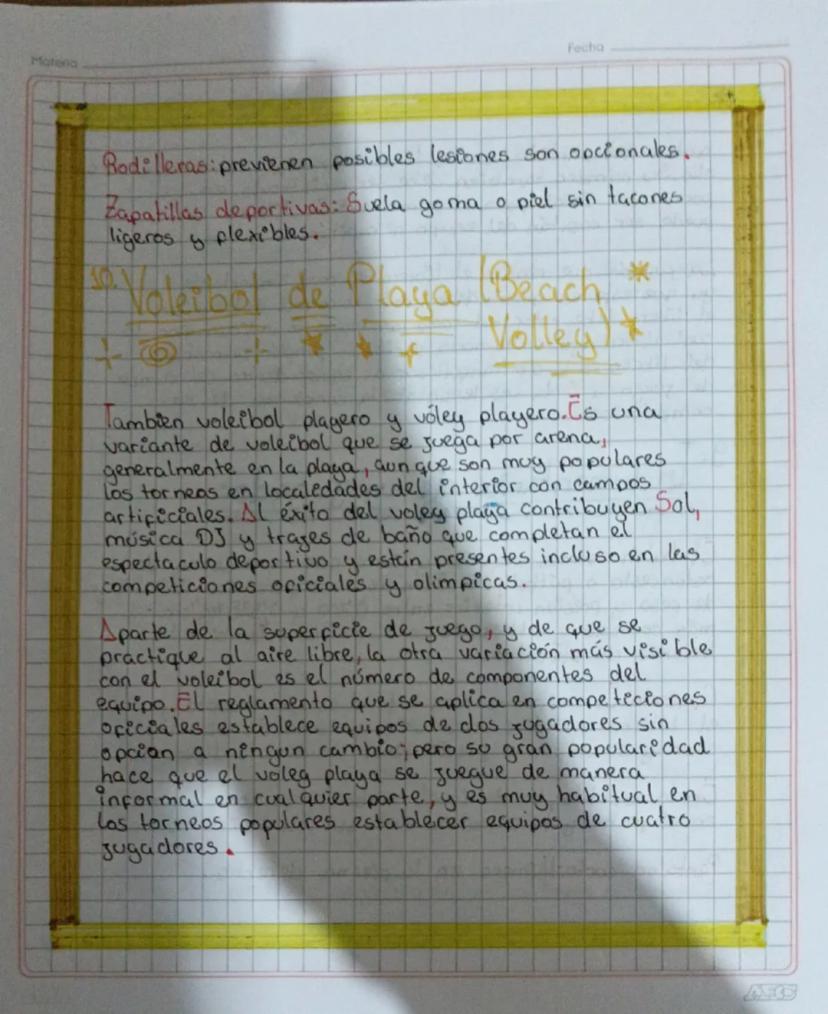 Materia
Fecha
Rodilleras: previenen posibles lesiones son opcionales.
Zapatillas deportivas: Suela goma o piel sin tacones
ligeros y flexibles.
10. Voleibol de Playa (Beach
Volley)
Tambien voleibol playero y vóley playero. Es una
variante de voleibol que se juega por arena,
generalmente en la playa, aun que son muy populares
los torneos en localedades del interior con campos
artificiales. Al éxito del voley playa contribuyen Sol,
música DJ y trajes de baño que completan el
espectaculo deportivo y están presentes incluso en las
competiciones oficiales y olimpicas.
Aparte de la superficie de juego, y de que se
practique al aire libre, la otra variación más visible
con el voleibol es el número de componentes del
equipo. El reglamento que se aplica en competeciones
oficiales establece equipos de dos jugadores sin
opcion a ningun cambio; pero su gran popularidad
hace que el voleg playa se juegue de manera
informal en cualquier parte, y es muy habitual en
los torneos populares establecer equipos de cuatro
jugadores.